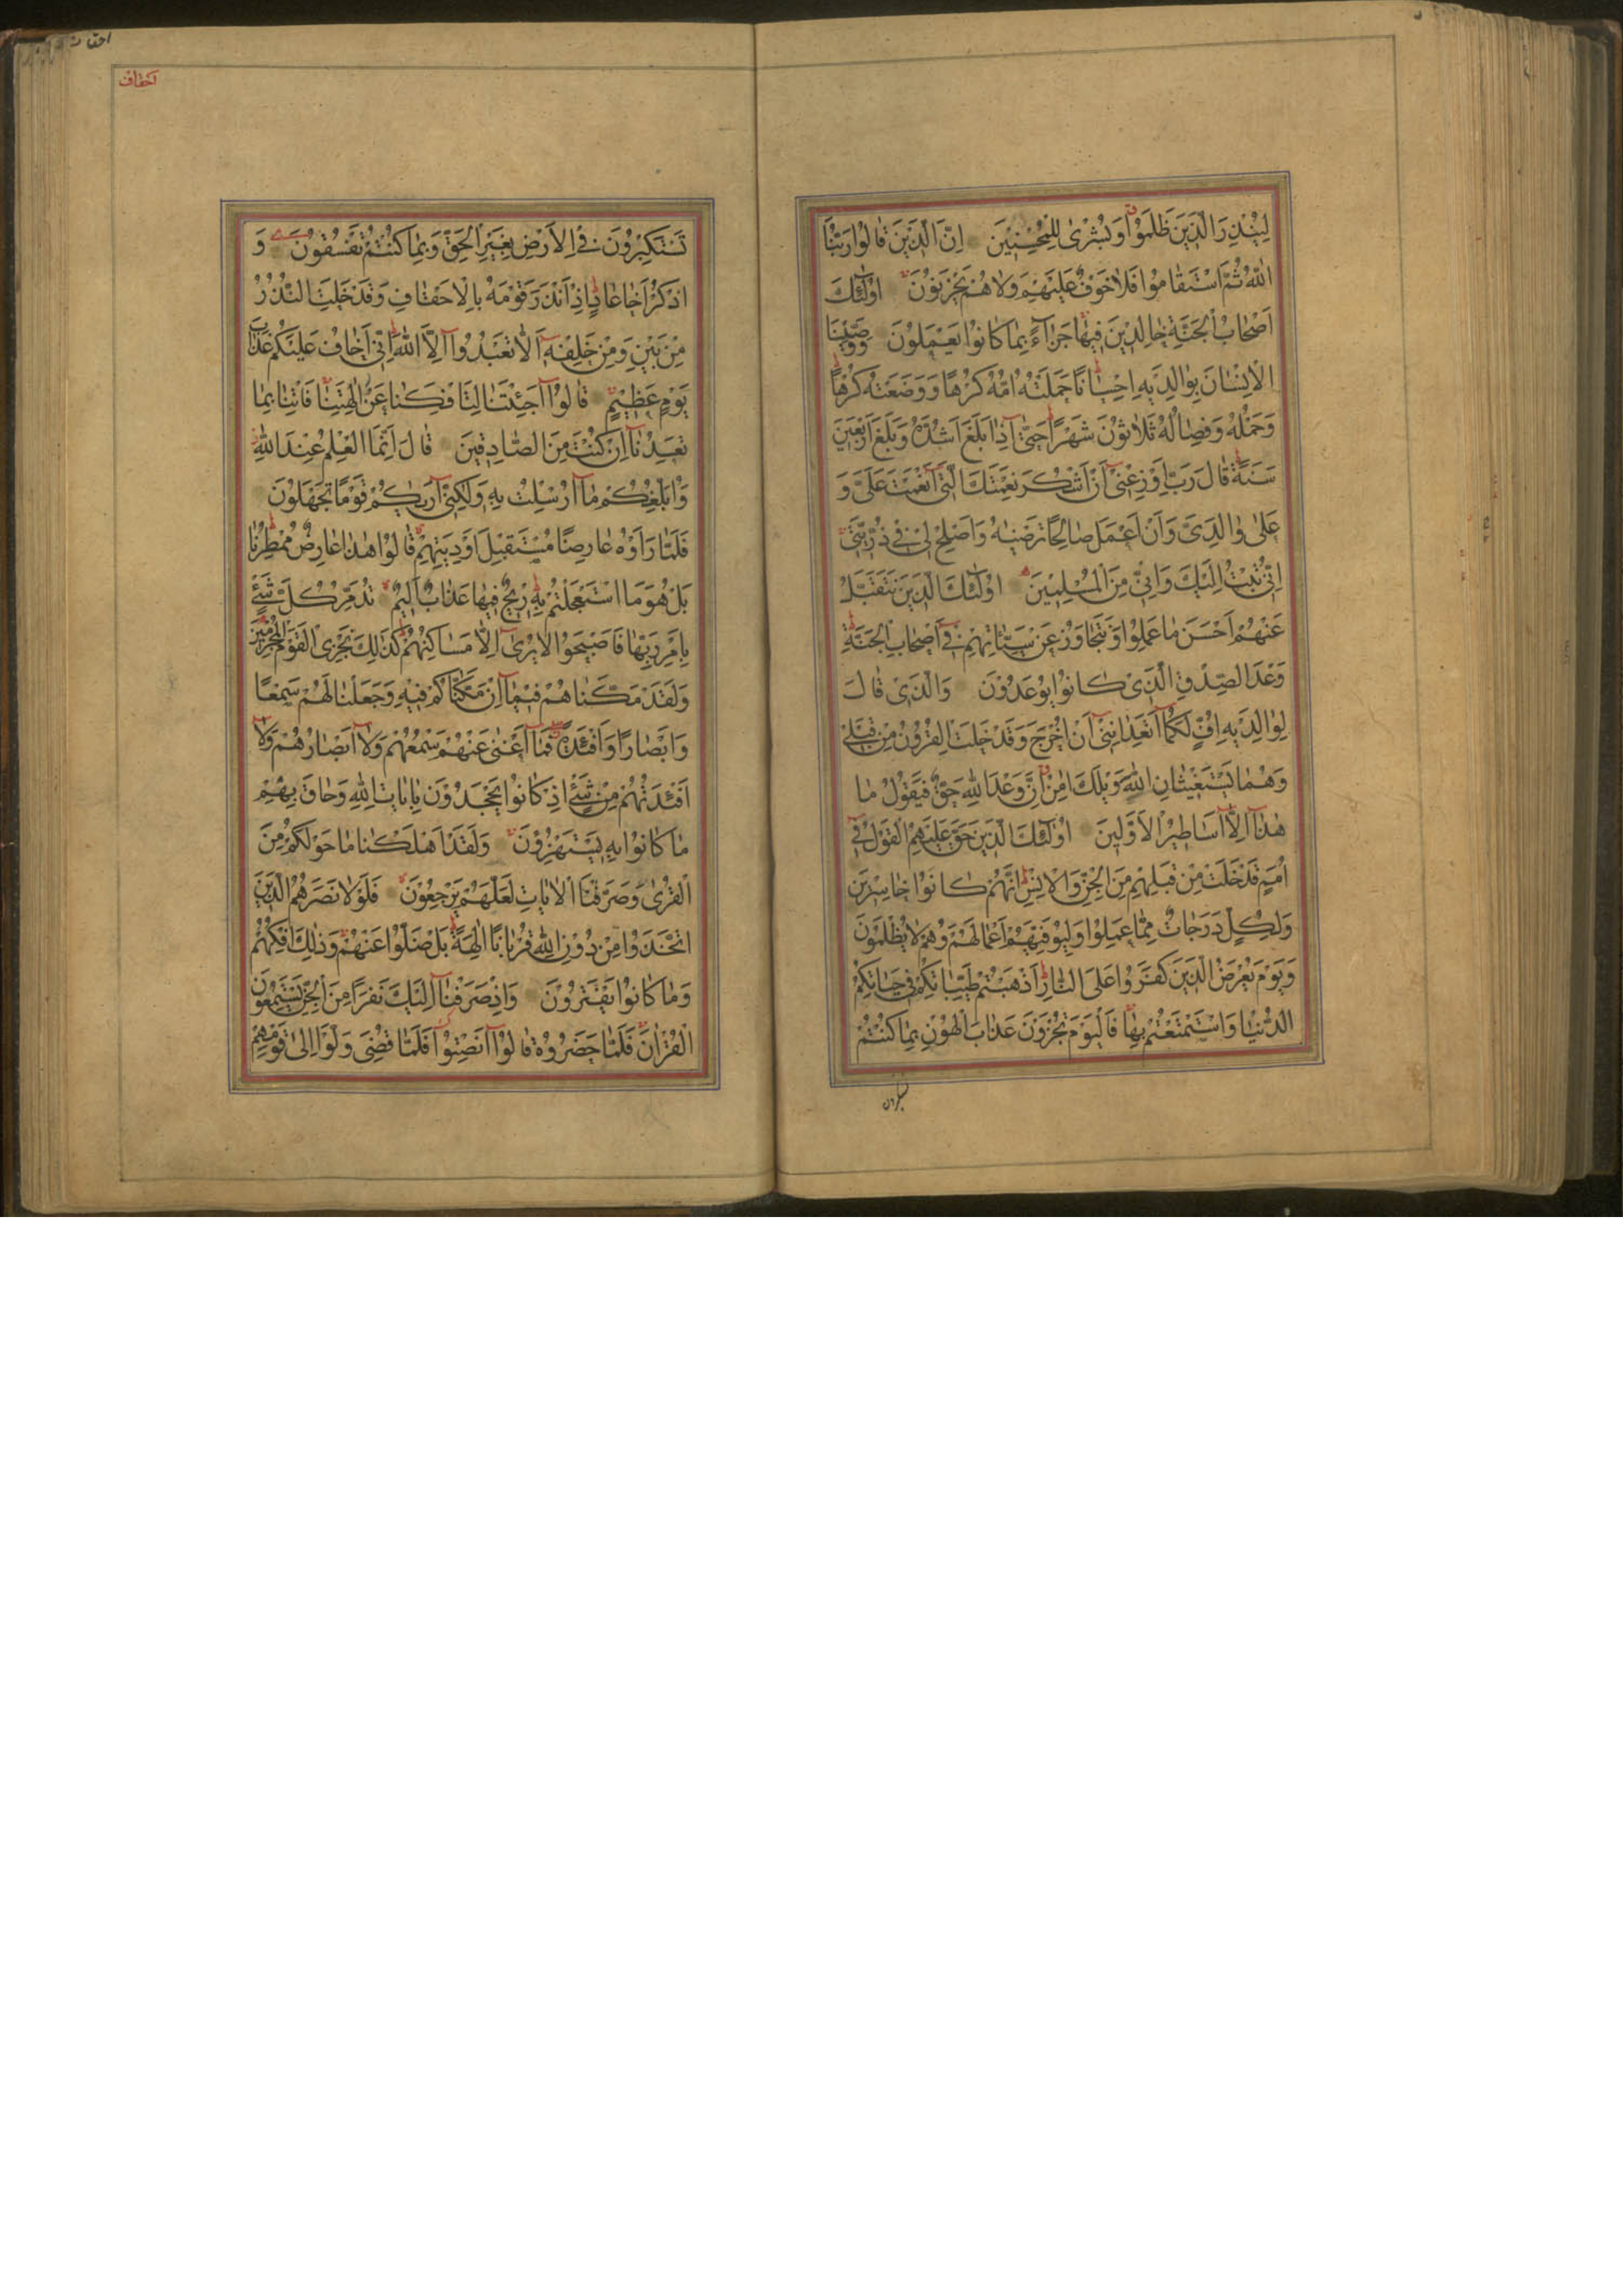 لِيُنْذِرَ الَّذِينَ ظَلَمُوا وَبُشْرىٰ لِلْمُحْسِنِينَ اِنَّ الَّذِينَ قَالُوا رَبُّنَا
اللّٰهُ ثُمَّ اسْتَقَامُوا فَلَا خَوْفٌ عَلَيْهِمْ وَلَا هُمْ يَحْزَنُونَ اُولٰئِكَ
اَصْحَابُ الْجَنَّةِ خَالِدِينَ فِيهَا جَزَاءً بِمَا كَانُوا يَعْمَلُونَ وَوَصَّيْنَا
الْاِنْسَانَ بِوَالِدَيْهِ اِحْسَانًا حَمَلَتْهُ اُمُّهُ كُرْهًا وَوَضَعَتْهُ كُرْهًا
وَحَمْلُهُ وَفِصَالُهُ ثَلَاثُونَ شَهْرًا حَتّٰى اِذَا بَلَغَ اَشُدَّهُ وَبَلَغَ اَرْبَعِينَ
سَنَةً قَالَ رَبِّ اَوْزِعْنِى اَنْ اَشْكُرَ نِعْمَتَكَ الَّتِى اَنْعَمْتَ عَلَىَّ وَ
عَلىٰ وَالِدَىَّ وَاَنْ اَعْمَلَ صَالِحًا تَرْضٰيهُ وَاَصْلِحْ لِى فِى ذُرِّيَّتِى
اِنِّى تُبْتُ اِلَيْكَ وَاِنِّى مِنَ الْمُسْلِمِينَ اُولٰئِكَ الَّذِينَ نَتَقَبَّلُ
عَنْهُمْ اَحْسَنَ مَا عَمِلُوا وَنَتَجَاوَزُ عَنْ سَيِّئَاتِهِمْ فِى اَصْحَابِ الْجَنَّةِ
وَعْدَ الصِّدْقِ الَّذِى كَانُوا يُوعَدُونَ وَالَّذِى قَالَ
لِوَالِدَيْهِ اُفٍّ لَكُمَا اَتَعِدَانِنِى اَنْ اُخْرَجَ وَقَدْ خَلَتِ الْقُرُونُ مِنْ قَبْلِى
وَهُمَا يَسْتَغِيثَانِ اللّٰهَ وَيْلَكَ اٰمِنْ اِنَّ وَعْدَ اللّٰهِ حَقٌّ فَيَقُولُ مَا
هٰذَا اِلَّا اَسَاطِيرُ الْاَوَّلِينَ اُولٰئِكَ الَّذِينَ حَقَّ عَلَيْهِمُ الْقَوْلُ فِى
اُمَمٍ قَدْ خَلَتْ مِنْ قَبْلِهِمْ مِنَ الْجِنِّ وَالْاِنْسِ اِنَّهُمْ كَانُوا خَاسِرِينَ
وَلِكُلٍّ دَرَجَاتٌ مِمَّا عَمِلُوا وَلِيُوَفِّيَهُمْ اَعْمَالَهُمْ وَهُمْ لَا يُظْلَمُونَ
وَيَوْمَ يُعْرَضُ الَّذِينَ كَفَرُوا عَلَى النَّارِ اَذْهَبْتُمْ طَيِّبَاتِكُمْ فِى حَيَاتِكُمُ
الدُّنْيَا وَاسْتَمْتَعْتُمْ بِهَا فَالْيَوْمَ تُجْزَوْنَ عَذَابَ الْهُونِ بِمَا كُنْتُمْ
تستكبرون
احقاف
احقاف
تَسْتَكْبِرُونَ فِى الْاَرْضِ بِغَيْرِ الْحَقِّ وَبِمَا كُنْتُمْ تَفْسُقُونَ وَ
اذْكُرْ اَخَا عَادٍ اِذْ اَنْذَرَ قَوْمَهُ بِالْاَحْقَافِ وَقَدْ خَلَتِ النُّذُرُ
مِنْ بَيْنِ وَمِنْ خَلْفِهِ اَلَّا تَعْبُدُوا اِلَّا اللّٰهَ اِنِّى اَخَافُ عَلَيْكُمْ عَذَابَ
يَوْمٍ عَظِيمٍ قَالُوا اَجِئْتَنَا لِتَاْفِكَنَا عَنْ اٰلِهَتِنَا فَاْتِنَا بِمَا
تَعِدُنَا اِنْ كُنْتَ مِنَ الصَّادِقِينَ قَالَ اِنَّمَا الْعِلْمُ عِنْدَ اللّٰهِ
وَاُبَلِّغُكُمْ مَا اُرْسِلْتُ بِهِ وَلٰكِنِّى اَرٰيكُمْ قَوْمًا تَجْهَلُونَ
فَلَمَّا رَاَوْهُ عَارِضًا مُسْتَقْبِلَ اَوْدِيَتِهِمْ قَالُوا هٰذَا عَارِضٌ مُمْطِرُنَا
بَلْ هُوَ مَا اسْتَعْجَلْتُمْ بِهِ رِيحٌ فِيهَا عَذَابٌ اَلِيمٌ تُدَمِّرُ كُلَّ شَىْءٍ
بِاَمْرِ رَبِّهَا فَاَصْبَحُوا لَا يُرىٰ اِلَّا مَسَاكِنُهُمْ كَذٰلِكَ نَجْزِى الْقَوْمَ الْمُجْرِمِينَ
وَلَقَدْ مَكَّنَّاهُمْ فِيمَا اِنْ مَكَّنَّاكُمْ فِيهِ وَجَعَلْنَا لَهُمْ سَمْعًا
وَاَبْصَارًا وَاَفْئِدَةً فَمَا اَغْنىٰ عَنْهُمْ سَمْعُهُمْ وَلَا اَبْصَارُهُمْ وَلَا
اَفْئِدَتُهُمْ مِنْ شَىْءٍ اِذْ كَانُوا يَجْحَدُونَ بِاٰيَاتِ اللّٰهِ وَحَاقَ بِهِمْ
مَا كَانُوا بِهِ يَسْتَهْزِؤُنَ وَلَقَدْ اَهْلَكْنَا مَا حَوْلَكُمْ مِنَ
الْقُرىٰ وَصَرَّفْنَا الْاٰيَاتِ لَعَلَّهُمْ يَرْجِعُونَ فَلَوْلَا نَصَرَهُمُ الَّذِينَ
اتَّخَذُوا مِنْ دُونِ اللّٰهِ قُرْبَانًا اٰلِهَةً بَلْ ضَلُّوا عَنْهُمْ وَذٰلِكَ اِفْكُهُمْ
وَمَا كَانُوا يَفْتَرُونَ وَاِذْ صَرَفْنَا اِلَيْكَ نَفَرًا مِنَ الْجِنِّ يَسْتَمِعُونَ
الْقُرْاٰنَ فَلَمَّا حَضَرُوهُ قَالُوا اَنْصِتُوا فَلَمَّا قُضِىَ وَلَّوْا اِلىٰ قَوْمِهِمْ